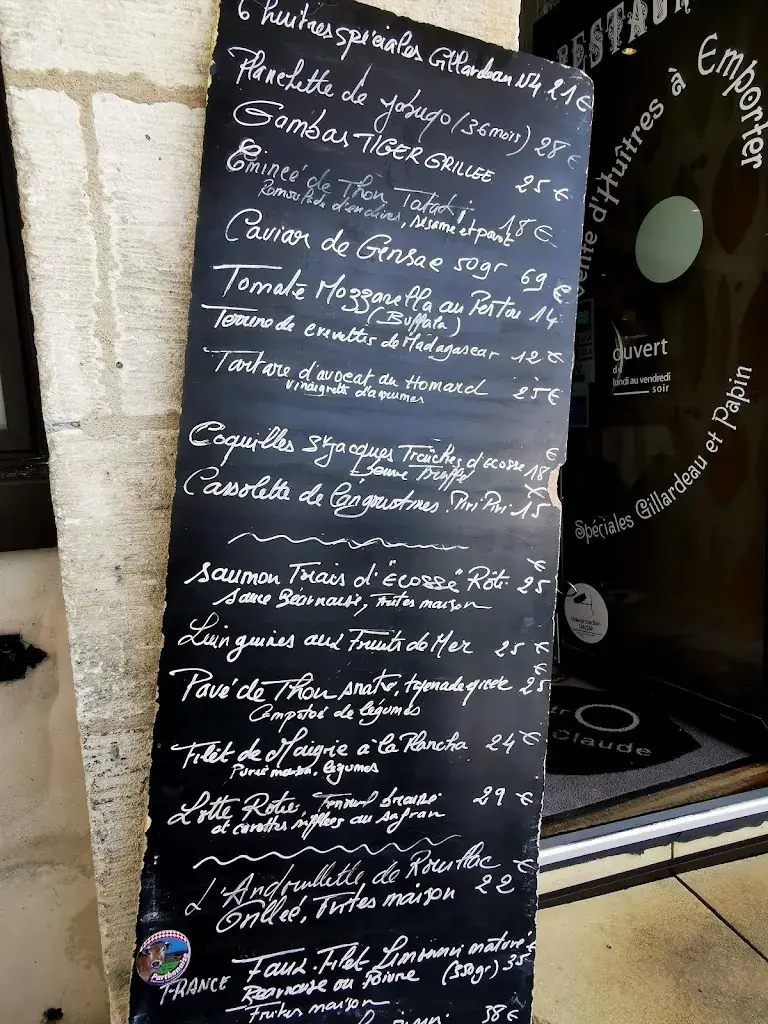 6 huitres spéciales Gillardeau N4 21€
Planchette de Jabugo (36 mois) 28€
Gambas TIGER GRILLEE 25€
Emincé de Thon Tataki 18€
Remoulade d'endives, sésame et pavot
Caviar de Gensac 50gr 69€
Tomate Mozzarella au Pestou 14€
(Buffala)
Terrine de crevettes de Madagascar 12€
Tartare d'avocat au Homard 25€
vinaigrette d'agrumes
Coquilles St jacques Fraiches d'ecosse 18€
Truffe
Cassolette de langoustines. Piri Piri 15€
Saumon Frais d'"Ecosse" Rôti 25€
sauce Béarnaise, frites maison
Linguines aux Fruits de Mer 25€
Pavé de Thon snaké, tapenade 25€
Compoté de légumes
Filet de Maigre à la Plancha 24€
Purée maison, légumes
Lotte Rotie, Fenouil braisé 29€
et carottes au safran
L'Andouillette de Rouillac €
Grilleé, Frites maison 22
Parthenaise
FRANCE
Faux-Filet Limousin maturé €
Bearnaise ou Poivre (350gr) 35
Frites maison
38€
RESTAUR
vente d'Huîtres à Emporter
ouvert
lundi au vendredi
soir
Spéciales Gillardeau et Papin
Claude